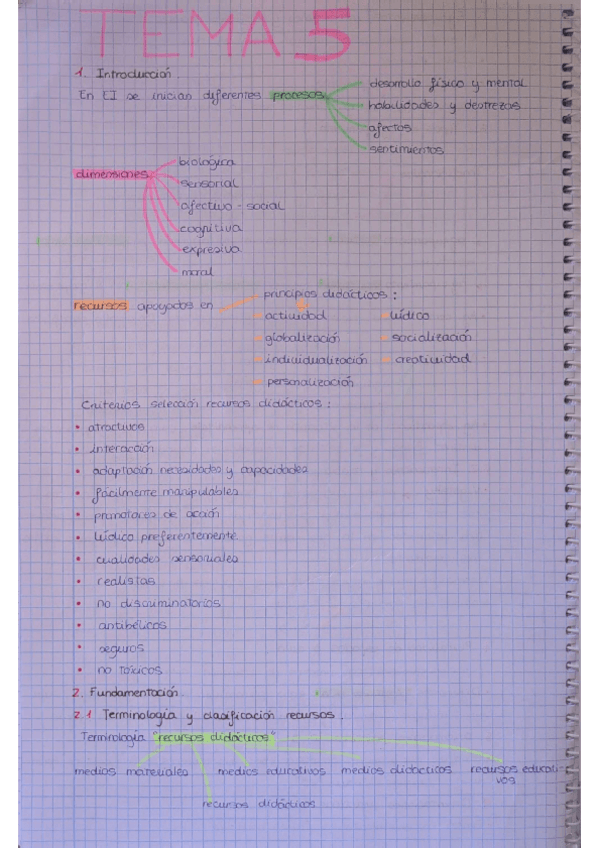 TEMA 5
1. Introducción
En EI se inician diferentes procesos
desarrollo físico y mental
habilidades y destrezas
afectos
sentimientos
dimensiones
biológica
sensorial
afectivo - social
cognitiva
expresiva
moral
recursos apoyados en
principios didácticos :
actividad lúdico
globalización socialización
individualización creatividad
personalización
Criterios selección recursos didácticos :
• atractivos
• interacción
• adaptación necesidades y capacidades
• fácilmente manipulables
• promotores de acción
• lúdico preferentemente
• cualidades sensoriales
• realistas
• no discriminatorios
• antibélicos
• seguros
• no tóxicos
2. Fundamentación
2.1 Terminología y clasificación recursos.
Terminología "recursos didácticos"
medios materiales medios educativos medios didácticos recursos educati-
vos
recursos didácticos